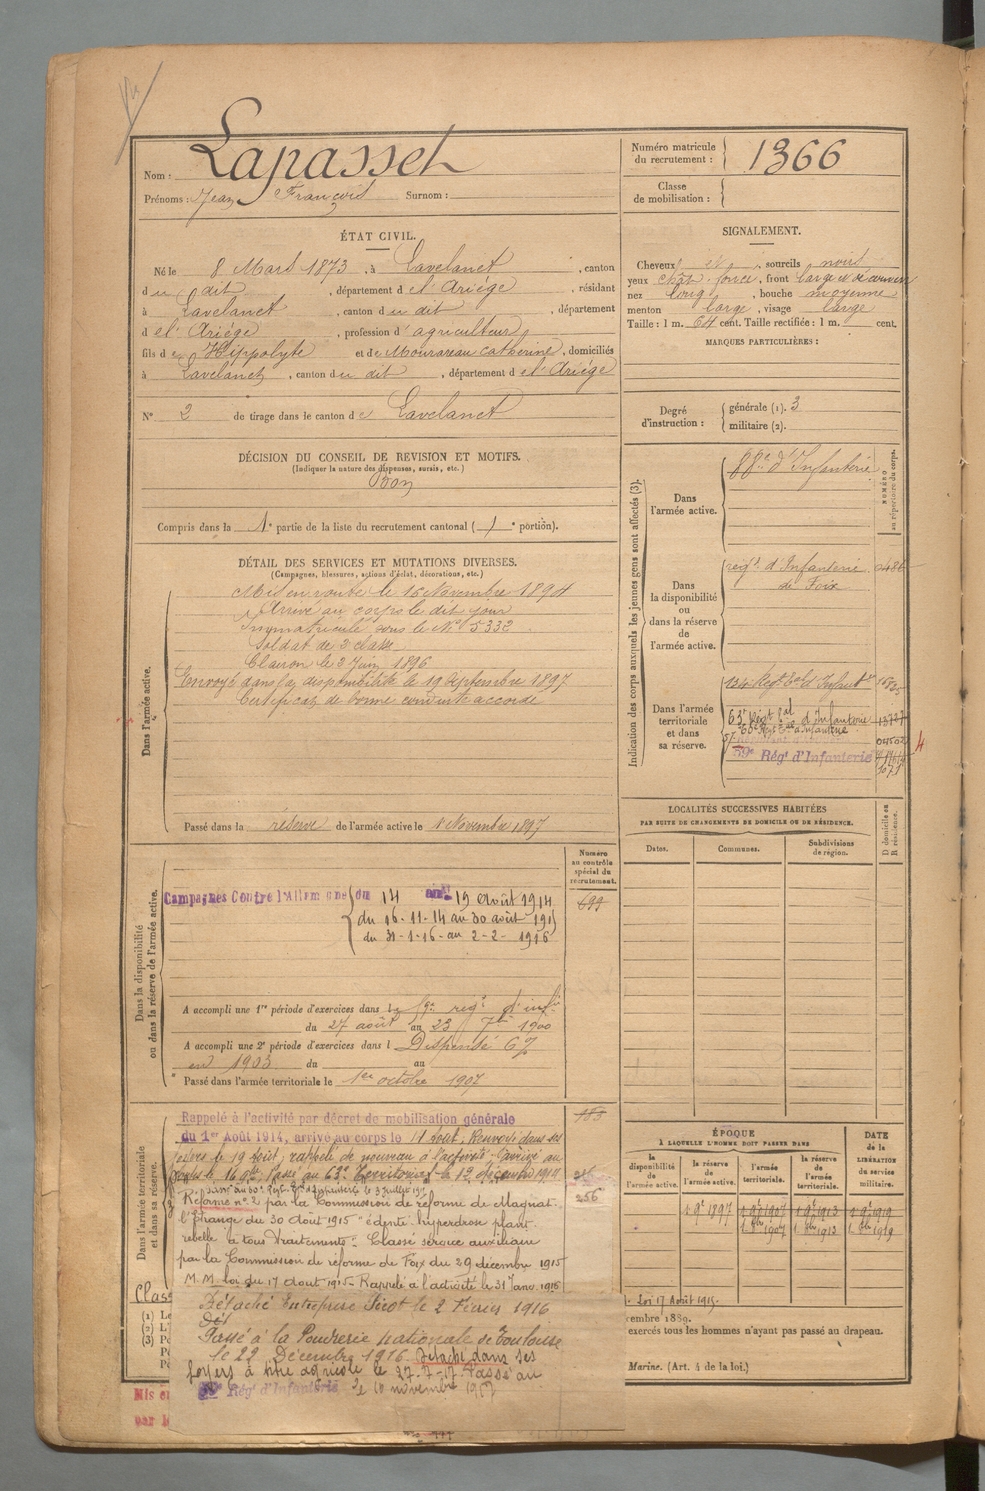 Nom : Lapasset
Prénoms : Jean François Surnom :
Numéro matricule du recrutement : 1366
Classe de mobilisation :
ÉTAT CIVIL.
Né le 8 Mars 1873, à Lavelanet, canton
du dit, département de l'Ariége, résidant
à Lavelanet, canton du dit, département
de l'Ariége, profession d'agriculteur
fils de Hippolyte et de Mourareau Catherine, domiciliés
à Lavelanet, canton du dit, département de l'Ariége
N° 2 de tirage dans le canton de Lavelanet
SIGNALEMENT.
Cheveux et, sourcils noirs
yeux chât. foncé, front large et découvert
nez long, bouche moyenne
menton large, visage large
Taille : 1 m. 64 cent. Taille rectifiée : 1 m. cent.
MARQUES PARTICULIÈRES :
Degré d'instruction : générale (1). 3
militaire (2).
DÉCISION DU CONSEIL DE REVISION ET MOTIFS.
(Indiquer la nature des dispenses, sursis, etc.)
Bon
Compris dans la 1e partie de la liste du recrutement cantonal (1e portion).
DÉTAIL DES SERVICES ET MUTATIONS DIVERSES.
(Campagnes, blessures, actions d'éclat, décorations, etc.)
Dans l'armée active.
Mis en route le 16 Novembre 1894
Arrivé au corps le dit jour
Immatriculé sous le N° 5332
Soldat de 2 classe
Clairon le 3 Juin 1896
Envoyé dans la disponibilité le 19 Septembre 1897
Certificat de bonne conduite accordé
Passé dans la réserve de l'armée active le 1 Novembre 1897
Indication des corps auxquels les jeunes gens sont affectés (3).
NUMÉRO au répertoire du corps.
Dans l'armée active.
88e d'Infanterie
Dans la disponibilité ou dans la réserve de l'armée active.
regt. d'Infanterie
de Foix
Dans l'armée territoriale et dans sa réserve.
134 Régt Tal d'Infant
63e Régt Tal d'Infanterie
59e Rég't d'Infanterie
4
LOCALITÉS SUCCESSIVES HABITÉES
PAR SUITE DE CHANGEMENTS DE DOMICILE OU DE RÉSIDENCE.
Dates. Communes. Subdivisions de région. D domicile ou R résidence.
Dans la disponibilité ou dans la réserve de l'armée active.
Numéro au contrôle spécial du recrutement.
699
Campagnes Contre l'Allemagne du 14 au 19 Août 1914
du 16-11-14 au 30 août 1915
du 31-1-16 au 2-2-1916
A accompli une 1re période d'exercices dans le regt d'infie
du 27 août au 23 7bre 1900
A accompli une 2e période d'exercices dans l Dispensé
en 1903 du au
Passé dans l'armée territoriale le 1er octobre 1907
Dans l'armée territoriale et dans sa réserve.
Rappelé à l'activité par décret de mobilisation générale
du 1er Août 1914, arrivé au corps le 11 août, Renvoyé dans ses
foyers le 19 août, rappelé de nouveau à l'activité, arrivé au
corps le 16 9bre Passé au 63e Territorial le 12 décembre 1914
Réformé n° 2 par la Commission de réforme de Magnat
l'Etrange du 30 Août 1915 "édente hyperdrose plant.
rebelle à tous traitements" Classé service auxiliaire
par la Commission de réforme de Foix du 29 décembre 1915
M.M. loi du 17 Aout 1915 - Rappelé à l'activité le 31 Janv. 1916
Détaché Entreprise Sicot le 2 Février 1916
Passé à la Poudrerie nationale de Toulouse
le 22 Décembre 1916. Détaché dans ses
foyers à titre agricole le 27-7-17. Passé au
Rég't d'Infanterie le 10 novembre 1917
256
ÉPOQUE
À LAQUELLE L'HOMME DOIT PASSER DANS
la disponibilité de l'armée active. la réserve de l'armée active. l'armée territoriale. la réserve de l'armée territoriale. DATE de la LIBÉRATION du service militaire.
1 9e 1897 1 9e 1907 1 9e 1913 1 9e 1919
1 8bre 1907 1 8bre 1913 1 8bre 1919
Loi 17 Août 1915.
cembre 1889.
exercés tous les hommes n'ayant pas passé au drapeau.
Marine. (Art. 4 de la loi.)
Clas
(1) Le
(2) L'
(3) Po
Mis e
par l